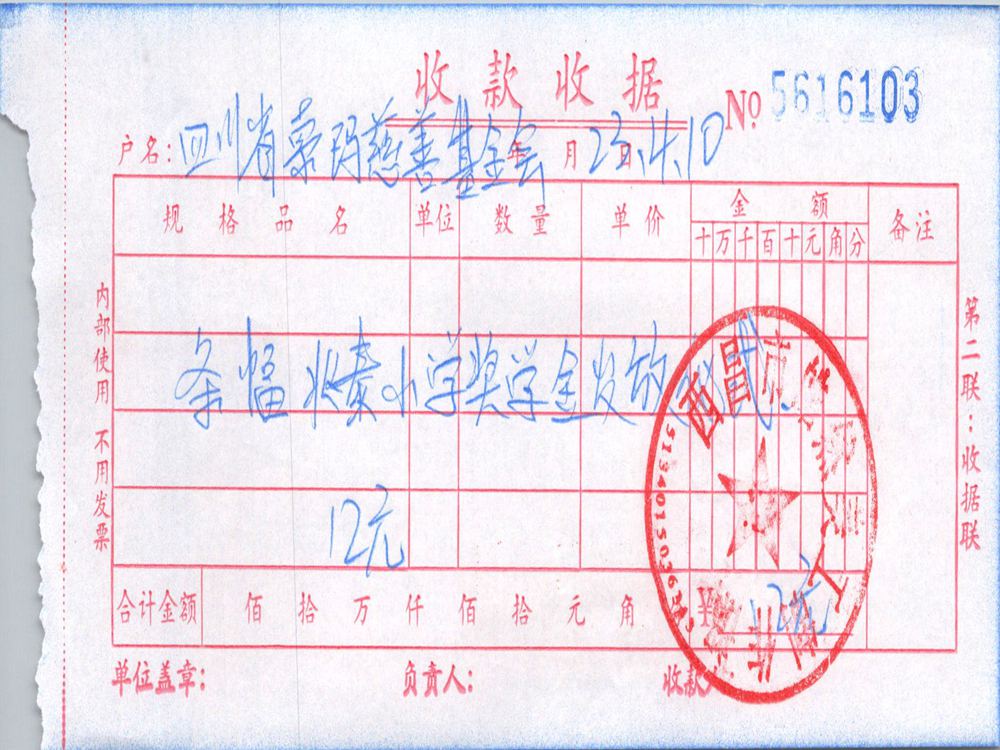 收款收据
No 5616103
户名：四川省索玛慈善基金会 年 月 日 23.4.10
规格品名 单位 数量 单价 金额 备注
十 万 千 百 十 元 角 分
条幅 小学奖学金发放
12元
合计金额 佰 拾 万 仟 佰 拾 元 角 ¥12元
单位盖章： 负责人： 收款人
内部使用 不用发票
第二联：收据联
西昌市